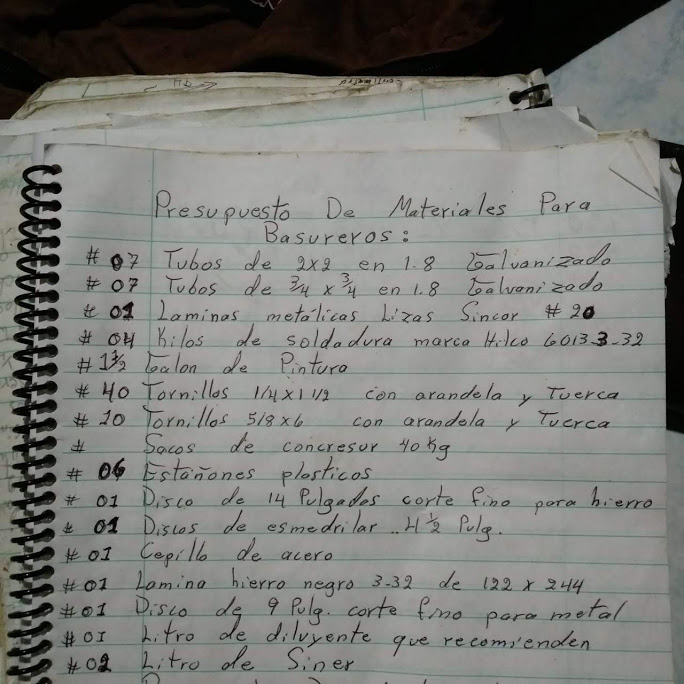 Presupuesto De Materiales Para
Basureros:
# 07 Tubos de 2x2 en 1.8 Galvanizado
# 07 Tubos de 3/4 x 3/4 en 1.8 Galvanizado
# 01 Laminas metálicas Lizas Sincor # 20
# 04 Kilos de soldadura marca Hilco 6013 3-32
# Galon de Pintura
# 40 Tornillos 1/4x1 1/2 con arandela y Tuerca
# 10 Tornillos 5/8x6 con arandela y Tuerca
# Sacos de concresur 40 kg
# 06 Estañones plasticos
# 01 Disco de 14 Pulgadas corte fino para hierro
# 01 Discos de esmedrilar .. 4 1/2 Pulg.
# 01 Cepillo de acero
# 01 Lamina hierro negro 3-32 de 122 x 244
# 01 Disco de 9 Pulg. corte fino para metal
# 01 Litro de diluyente que recomienden
# 02 Litro de Siner